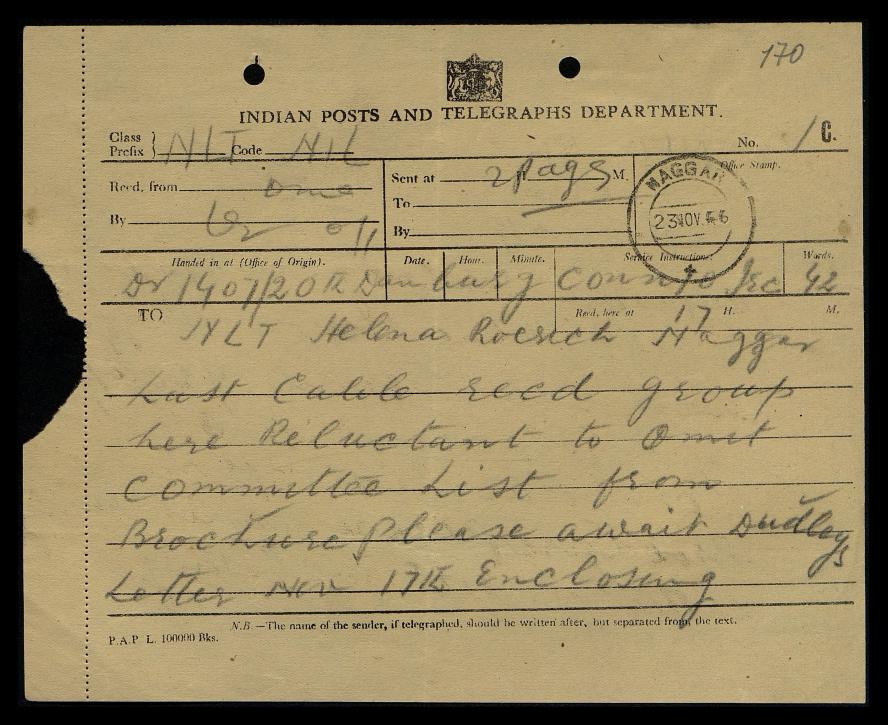 170
INDIAN POSTS AND TELEGRAPHS DEPARTMENT.
Class Prefix } NLT Code NIL
No. 1 C.
Recd. from
By
Sent at 2 Pags M.
To
By
Office Stamp.
NAGGAR
23 NOV
Handed in at (Office of Origin).
Date. Hour. Minute.
Service Instructions:
Words.
Danbury Conn
42
TO
Recd. here at 17 H. M.
NLT Helena Roerich Naggar
Last Cable recd group
here Reluctant to Omit
Committee List from
Brochure Please await Dudleys
Letter Nov 17th Enclosing
N.B.—The name of the sender, if telegraphed, should be written after, but separated from, the text.
P.A.P L. 100000 Bks.